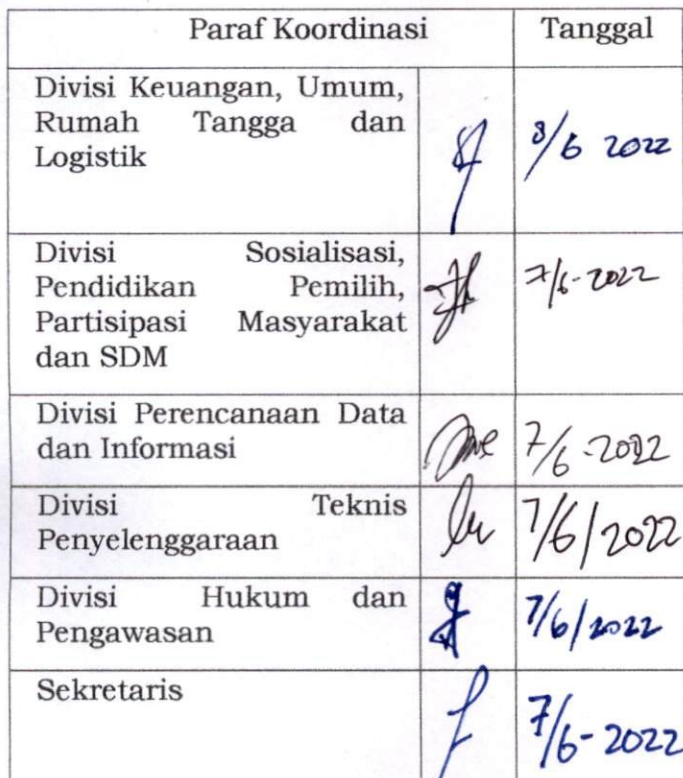 Paraf Koordinasi Tanggal
Divisi Keuangan, Umum,
Rumah Tangga dan
Logistik
8/6 2022
Divisi Sosialisasi,
Pendidikan Pemilih,
Partisipasi Masyarakat
dan SDM
7/6-2022
Divisi Perencanaan Data
dan Informasi
7/6-2022
Divisi Teknis
Penyelenggaraan
7/6/2022
Divisi Hukum dan
Pengawasan
7/6/2022
Sekretaris
7/6-2022